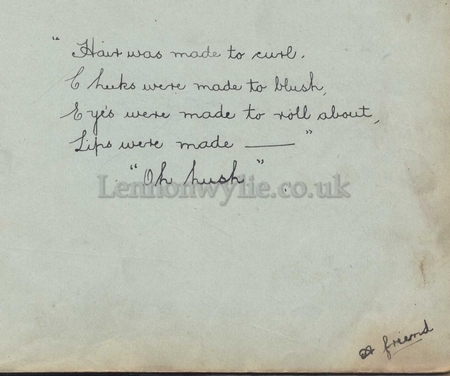 "Hair was made to curl.
Cheeks were made to blush,
Eye's were made to roll about,
Lips were made —— "
"Oh hush"
Lennonwylie.co.uk
a friend